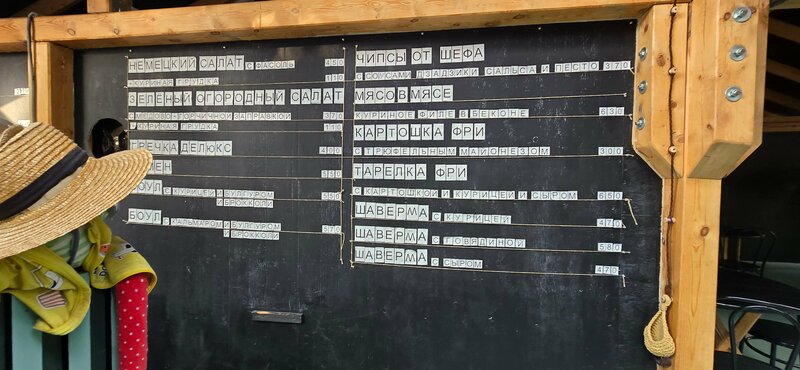 НЕМЕЦКИЙ САЛАТ С ФАСОЛЬ 450
+КУРИНАЯ ГРУДКА 110
ЗЕЛЕНЫЙ ОГОРОДНЫЙ САЛАТ
С МЕДОВО-ГОРЧИЧНОЙ ЗАПРАВКОЙ 370
+КУРИНАЯ ГРУДКА 110
ГРЕЧКА ДЕЛЮКС 400
350
БОУЛ С КУРИЦЕЙ И БУЛГУРОМ 550
И БРОККОЛИ
БОУЛ С КАЛЬМАРОМ И БУЛГУРОМ 570
И БРОККОЛИ
ЧИПСЫ ОТ ШЕФА
С СОУСАМИ ДЗАДЗИКИ САЛЬСА И ПЕСТО 370
МЯСО В МЯСЕ
КУРИНОЕ ФИЛЕ В БЕКОНЕ 630
КАРТОШКА ФРИ
С ТРЮФЕЛЬНЫМ МАЙОНЕЗОМ 300
ТАРЕЛКА ФРИ
С КАРТОШКОЙ И КУРИЦЕЙ И СЫРОМ 650
ШАВЕРМА С КУРИЦЕЙ 470
ШАВЕРМА С ГОВЯДИНОЙ 580
ШАВЕРМА С СЫРОМ 470